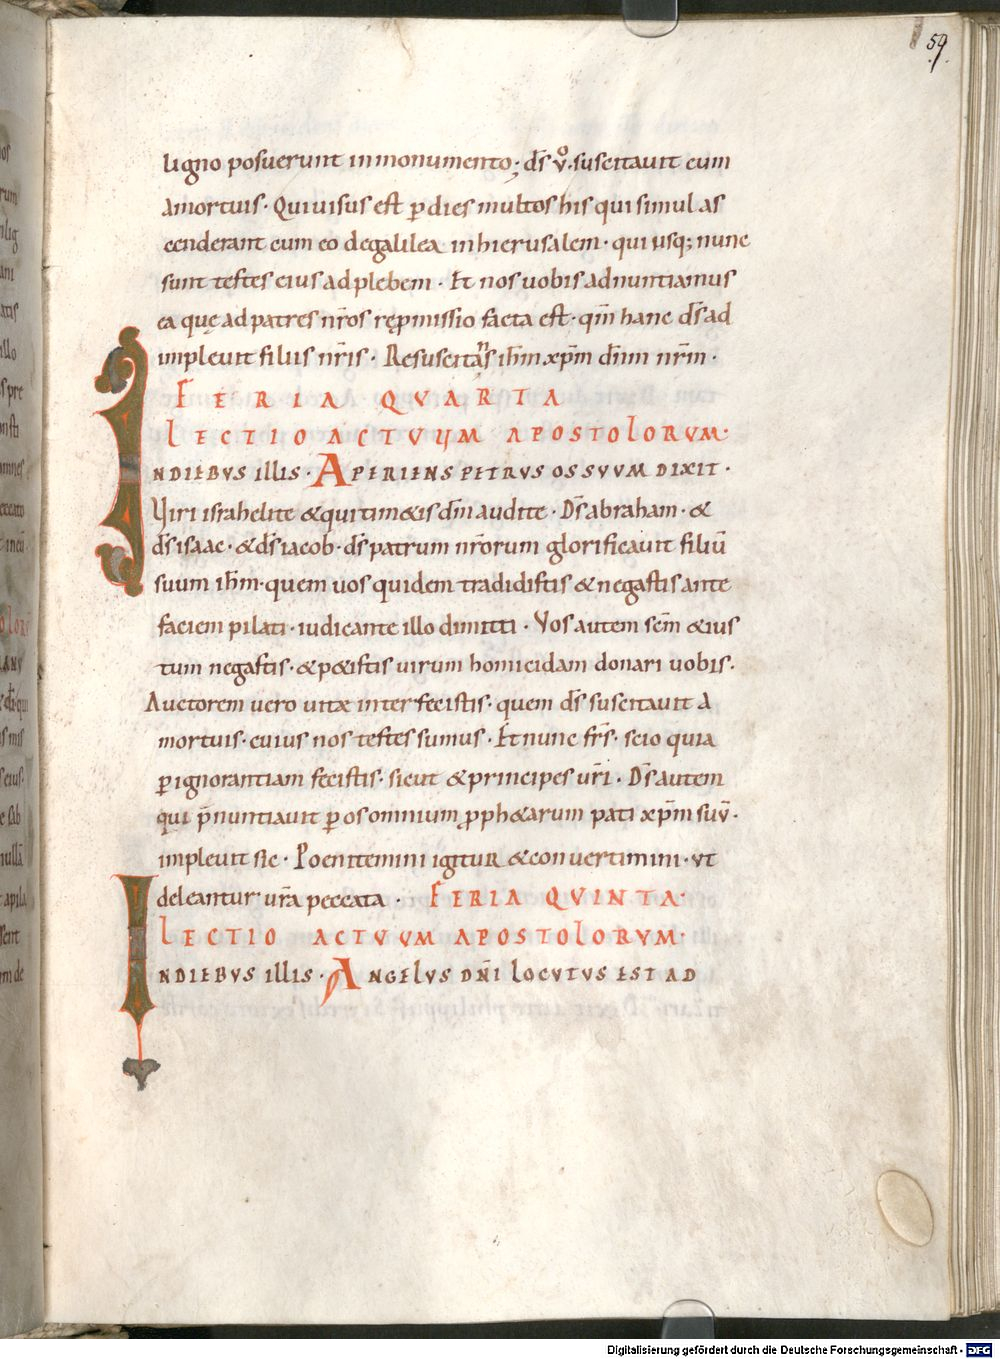 59
ligno posuerunt inmonumento; d̄s v̊. suscitauit eum
amortuis. Quiuisus est ꝑ dies multos his quisimul as
cenderant cum eo degalilea inhierusalem. qui usq; nunc
sunt testes eius adplebem. Et nos uobis adnuntiamus
ea quę ad patres nr̄os rep̱missio facta est. qm̄ hanc d̄s ad
impleuit filiis nr̄is. Resuscitans ih̄m xp̄m dn̄m nr̄m.
FERIA QVARTA
LECTIO ACTVUM APOSTOLORUM.
INDIEBVS ILLIS. APERIENS PETRVS OS SVVM DIXIT.
Viri israhelite & qui tim&is dm̄ audite. D̄s abraham. &
d̄s isaac. & d̄s iacob. d̄s patrum nr̄orum glorificauit filiū
suum ih̄m. quem uos quidem tradidistis & negastis ante
faciem pilati. iudicante illo dimitti. Vos autem sc̄m & ius
tum negastis. & p&istis uirum homicidam donari uobis.
Auctorem uero uitæ interfecistis. quem d̄s suscitauit a
mortuis. cuius nos testes sumus. Et nunc fr̄s. scio quia
ꝑ ignorantiam fecistis. sicut & principes ur̄i. D̄s autem
qui p̄nuntiauit ꝑ os omnium ꝓph&arum pati xp̄m suū.
impleuit sic. Poenitemini igitur & conuertimini. ut
deleantur ur̄a peccata. FERIA QVINTA.
LECTIO ACTVVM APOSTOLORVM.
INDIEBVS ILLIS. ANGELVS DN̄I LOCVTVS EST AD
Digitalisierung gefördert durch die Deutsche Forschungsgemeinschaft - DFG